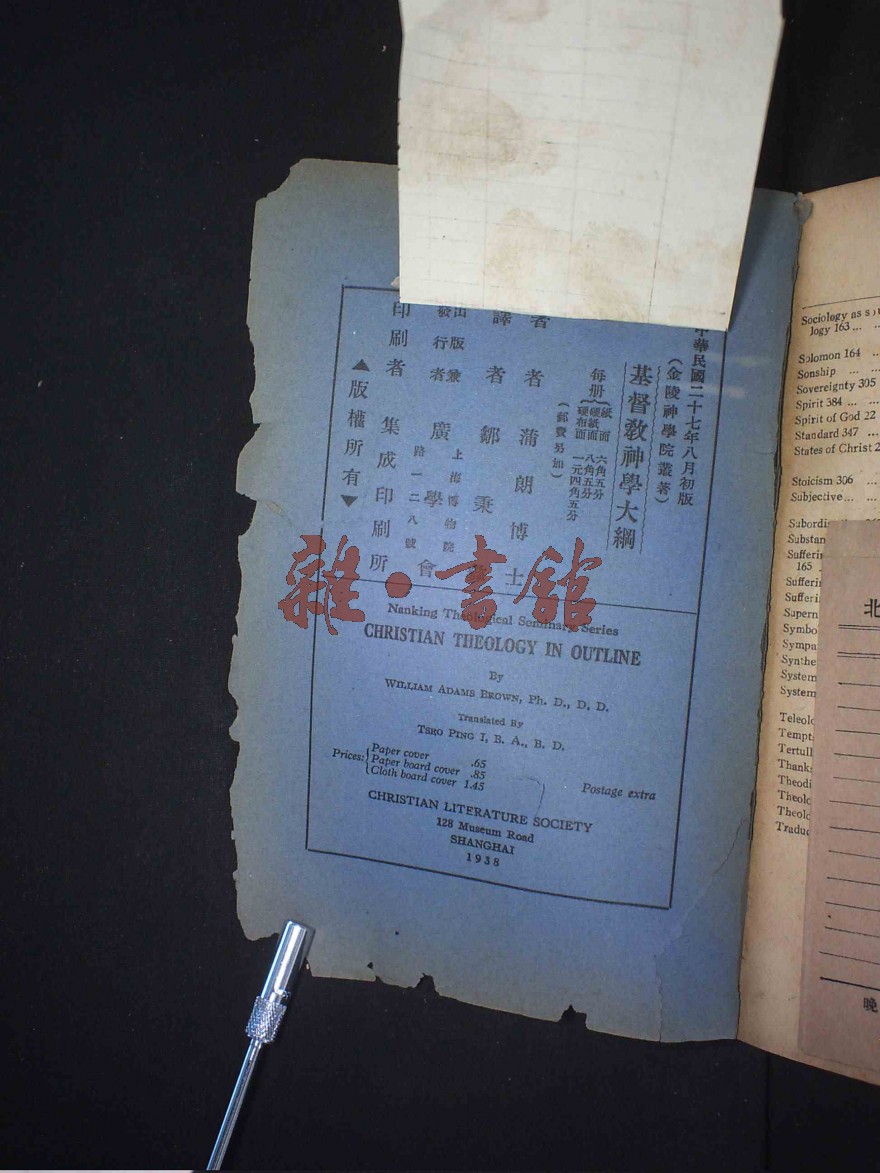 中華民國二十七年八月初版
(金陵神學院叢著)
基督教神學大綱
每册
紙面 六角五分
硬紙面 八角五分
硬布面 一元四角五分
(郵費另加)
著者 蒲朗博士
譯者 鄒秉
出版兼發行者 廣學會
上海博物院路一二八號
印刷者 集成印刷所
▲版權所有▼
雜·書館
Nanking Theological Seminary Series
CHRISTIAN THEOLOGY IN OUTLINE
By
WILLIAM ADAMS BROWN, Ph. D., D. D.
Translated By
TSEO PING I, B. A., B. D.
Prices:
Paper cover .65
Paper board cover .85
Cloth board cover 1.45
Postage extra
CHRISTIAN LITERATURE SOCIETY
128 Museum Road
SHANGHAI
1938
Sociology as
logy 163 ...
Solomon 164 ...
Sonship ... ...
Sovereignty 305
Spirit 384 ... ...
Spirit of God 22
Standard 347 ...
States of Christ 2
Stoicism 306 ...
Subjective ... ...
Subordi
Substan
Sufferin
165
Sufferi
Sufferi
Supern
Symbo
Sympa
Synthe
System
System
Teleolo
Tempt
Tertull
Thank
Theodi
Theolo
Theolo
Traduc
北
晚